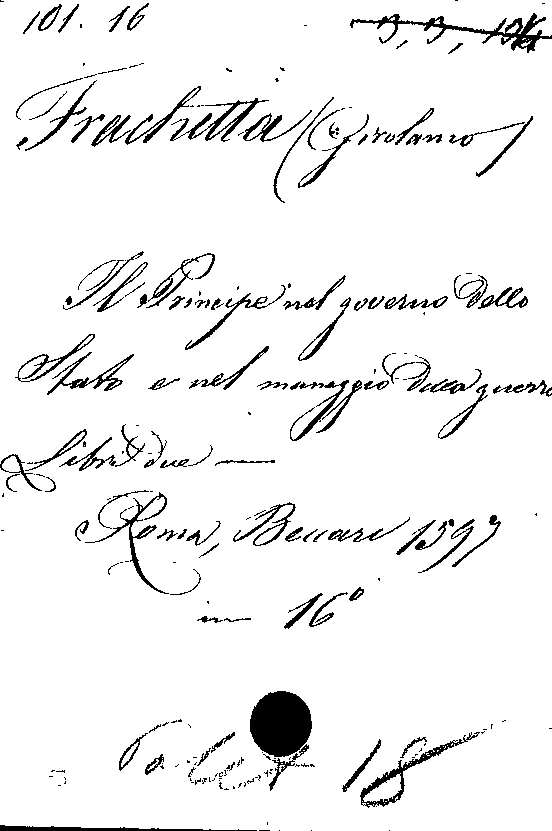 101. 16 B, B, 19
Frachetta (Girolamo)
Il Principe nel governo dello
Stato e nel maneggio della guerra
Libri due —
Roma, Beccari 1597
in 16°
18